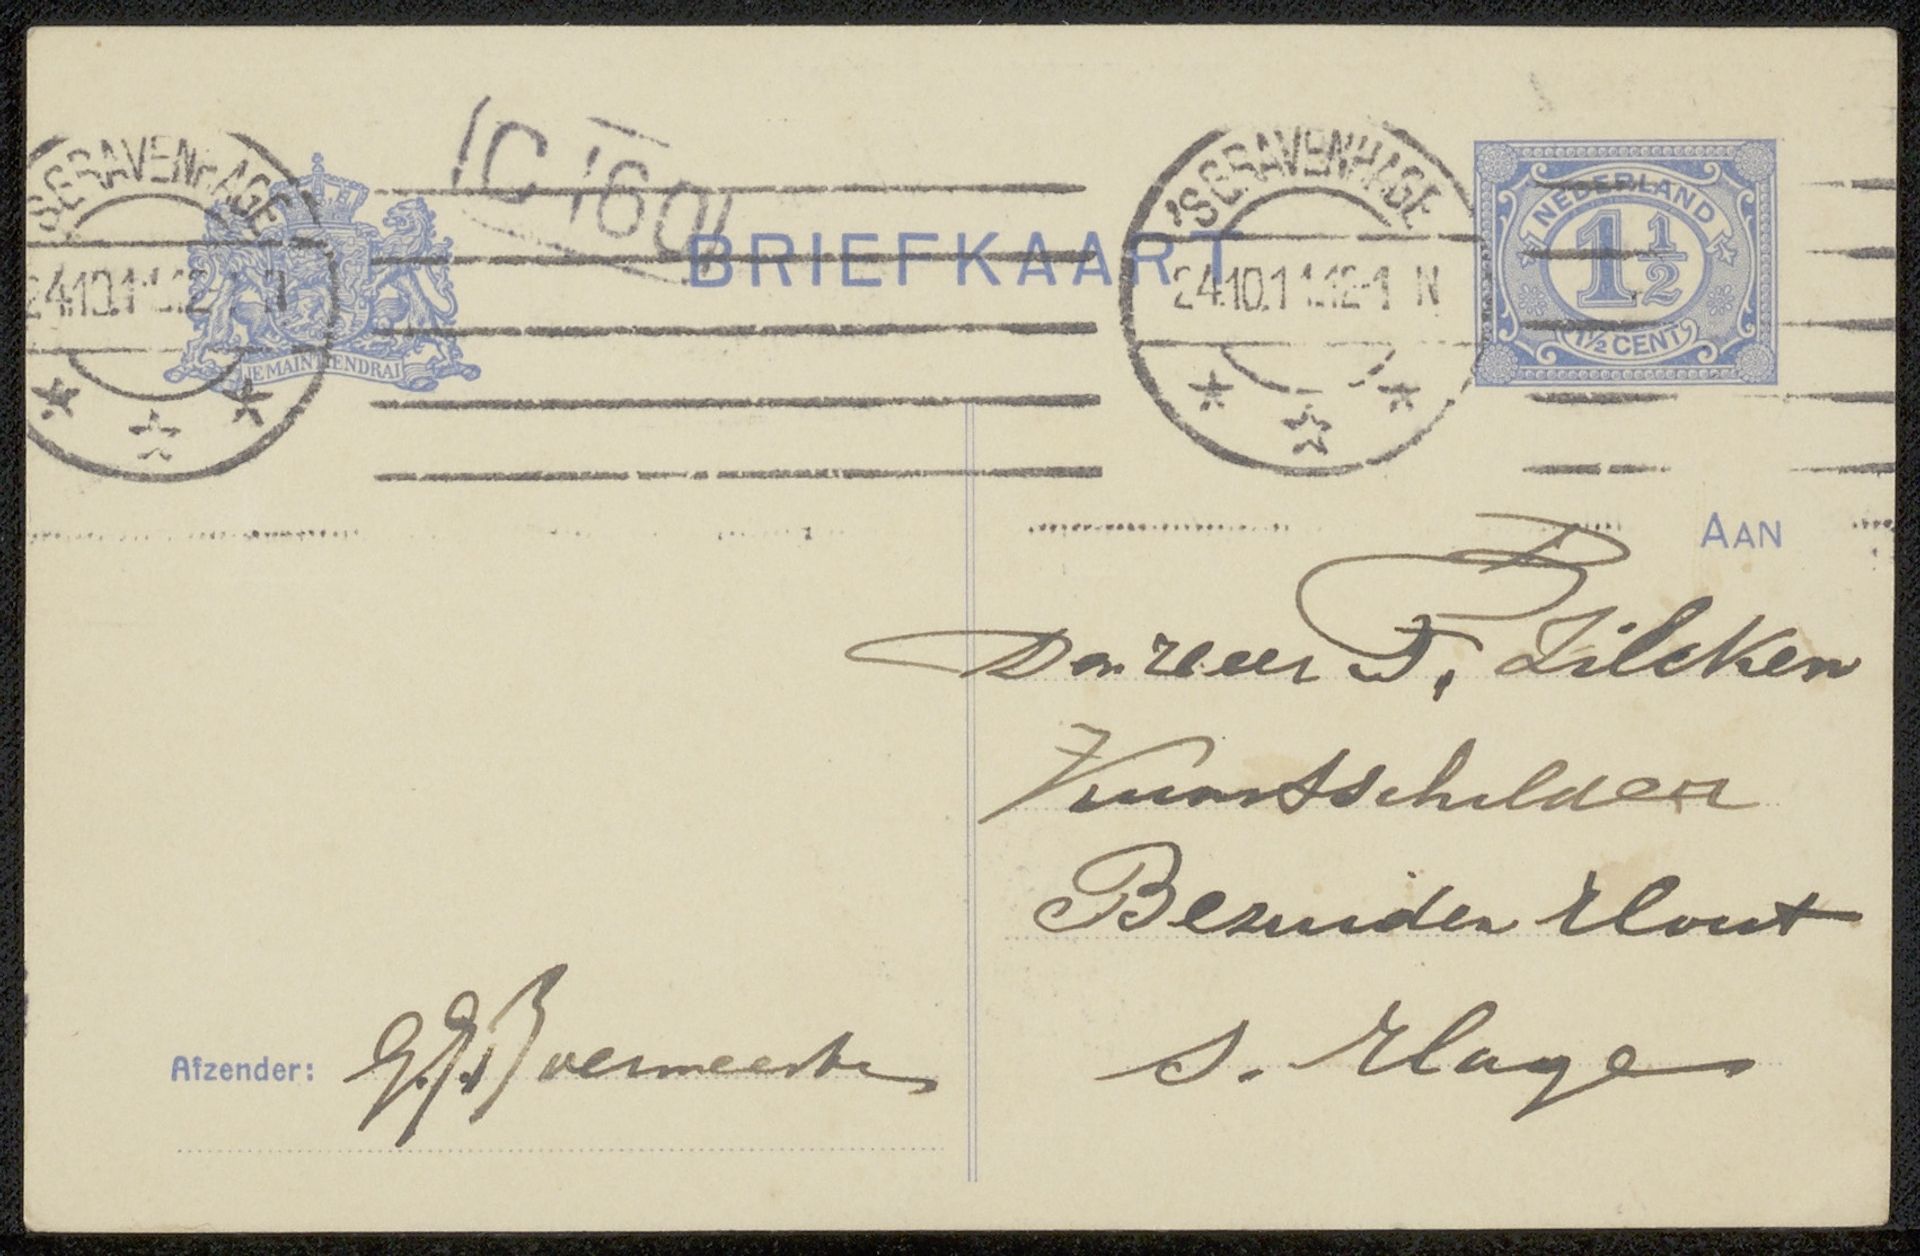 'SGRAVENHAGE
JE MAINTIENDRAI
C 160
BRIEFKAART
'SGRAVENHAGE
24.10.1 12-1 N
NEDERLAND
1 1/2
1 1/2 CENT
AAN
Den Heer F. Zilcken
Kunstschilder
Bezuiden Hout
s. Hage
Afzender: